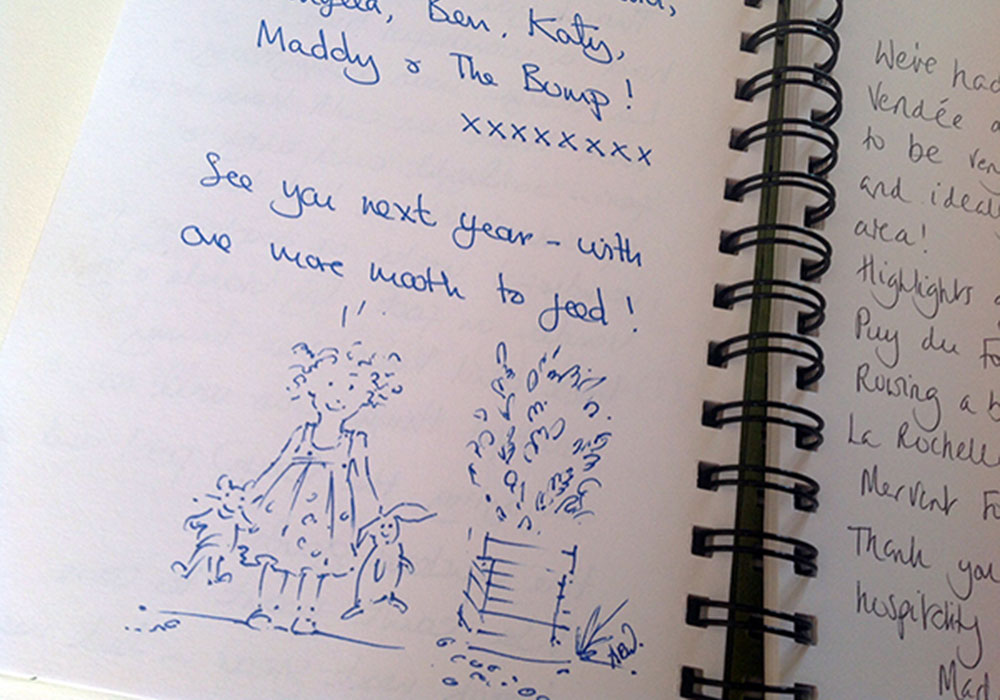 Ben, Katy,
Maddy & The Bump!
xxxxxxxx
See you next year - with
one more mouth to feed!
We've had
Vendée
to be very
and ideal
area!
Highlights
Puy du Fo
Rowing a b
La Rochelle
Mervent Fo
Thank you
hospitality
Mad